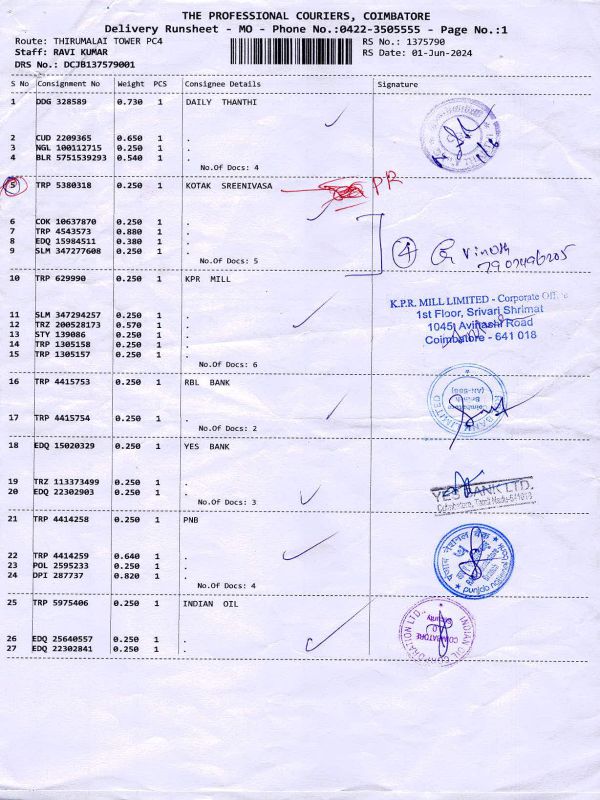 THE PROFESSIONAL COURIERS, COIMBATORE
Delivery Runsheet - MO - Phone No.:0422-3505555 - Page No.:1
Route: THIRUMALAI TOWER PC4 RS No.: 1375790
Staff: RAVI KUMAR RS Date: 01-Jun-2024
DRS No.: DCJB137579001
S No Consignment No Weight PCS Consignee Details Signature
1 DDG 328589 0.730 1 DAILY THANTHI
2 CUD 2209365 0.650 1 .
3 NGL 100112715 0.250 1 .
4 BLR 5751539293 0.540 1 .
No.Of Docs: 4
5 TRP 5380318 0.250 1 KOTAK SREENIVASA PR
6 COK 10637870 0.250 1 .
7 TRP 4543573 0.880 1 .
8 EDQ 15984511 0.380 1 .
9 SLM 347277608 0.250 1 .
No.Of Docs: 5
4 Vinoth
10 TRP 629990 0.250 1 KPR MILL
K.P.R. MILL LIMITED - Corporate Office
1st Floor, Srivari Shrimat
1045, Avinashi Road
Coimbatore - 641 018
11 SLM 347294257 0.250 1 .
12 TRZ 200528173 0.570 1 .
13 STY 139086 0.250 1 .
14 TRP 1305158 0.250 1 .
15 TRP 1305157 0.250 1 .
No.Of Docs: 6
16 TRP 4415753 0.250 1 RBL BANK
17 TRP 4415754 0.250 1 .
No.Of Docs: 2
18 EDQ 15020329 0.250 1 YES BANK
19 TRZ 113373499 0.250 1 .
20 EDQ 22302903 0.250 1 .
No.Of Docs: 3
YES BANK LTD.
Coimbatore, Tamil Nadu-641018
21 TRP 4414258 0.250 1 PNB
22 TRP 4414259 0.640 1 .
23 POL 2595233 0.250 1 .
24 DPI 287737 0.820 1 .
No.Of Docs: 4
25 TRP 5975406 0.250 1 INDIAN OIL
INDIAN OIL
COIMBATORE
26 EDQ 25640557 0.250 1 .
27 EDQ 22302841 0.250 1 .